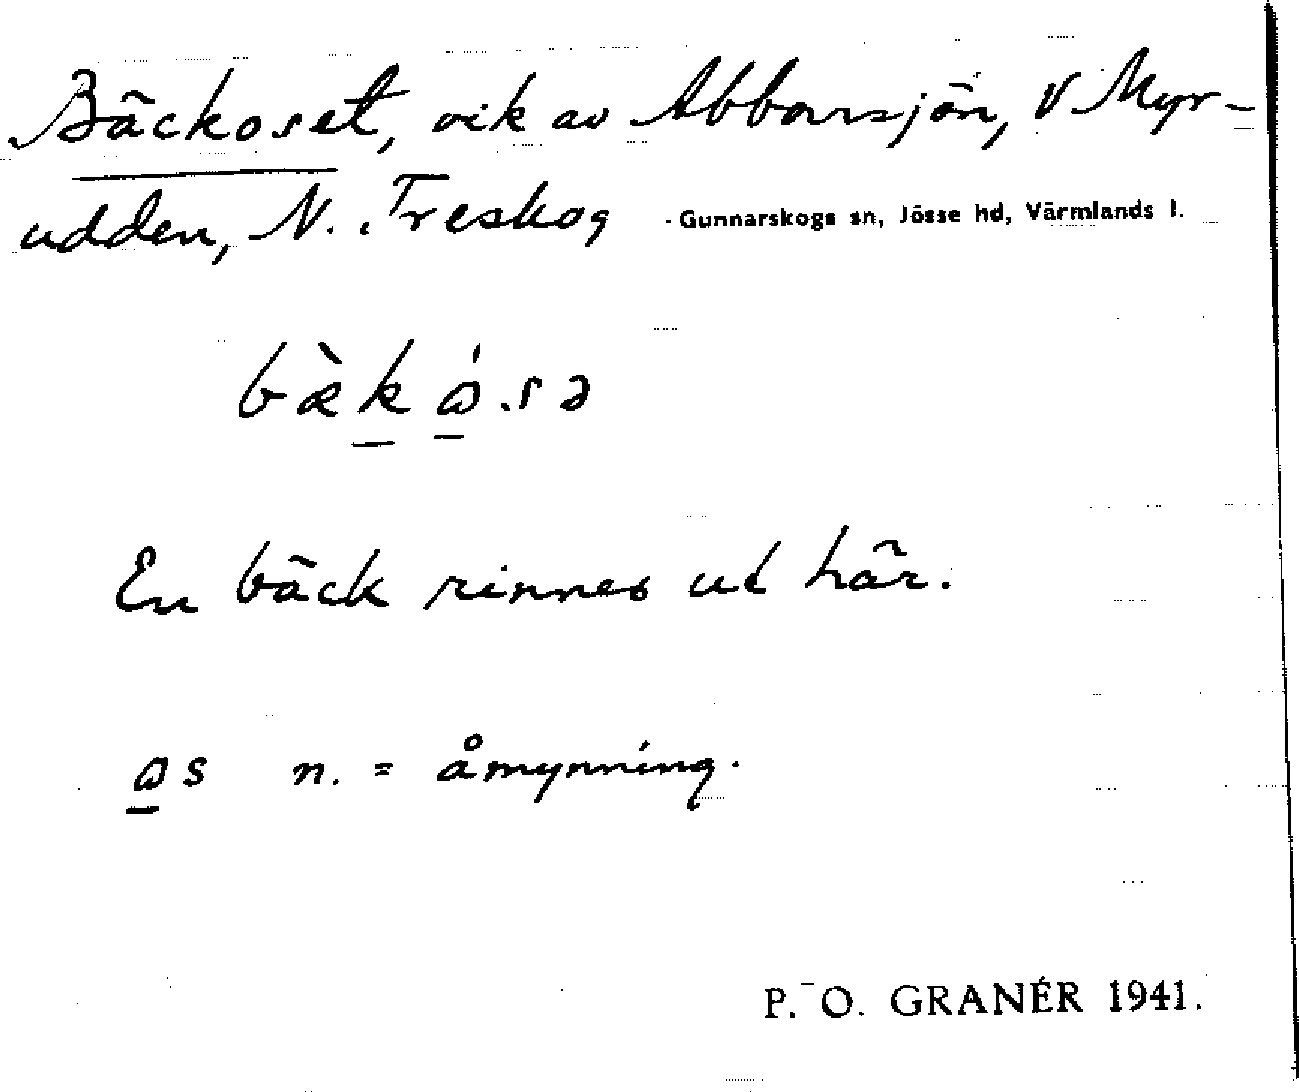 Bäckoset, vik av Abborrsjön, V Myr-
udden, N. Treskog - Gunnarskogs sn, Jösse hd, Värmlands l.
bæ̀kɷ́.sə
En bäck rinner ut här.
ɷs n. = åmynning.
P. O. GRANÉR 1941.